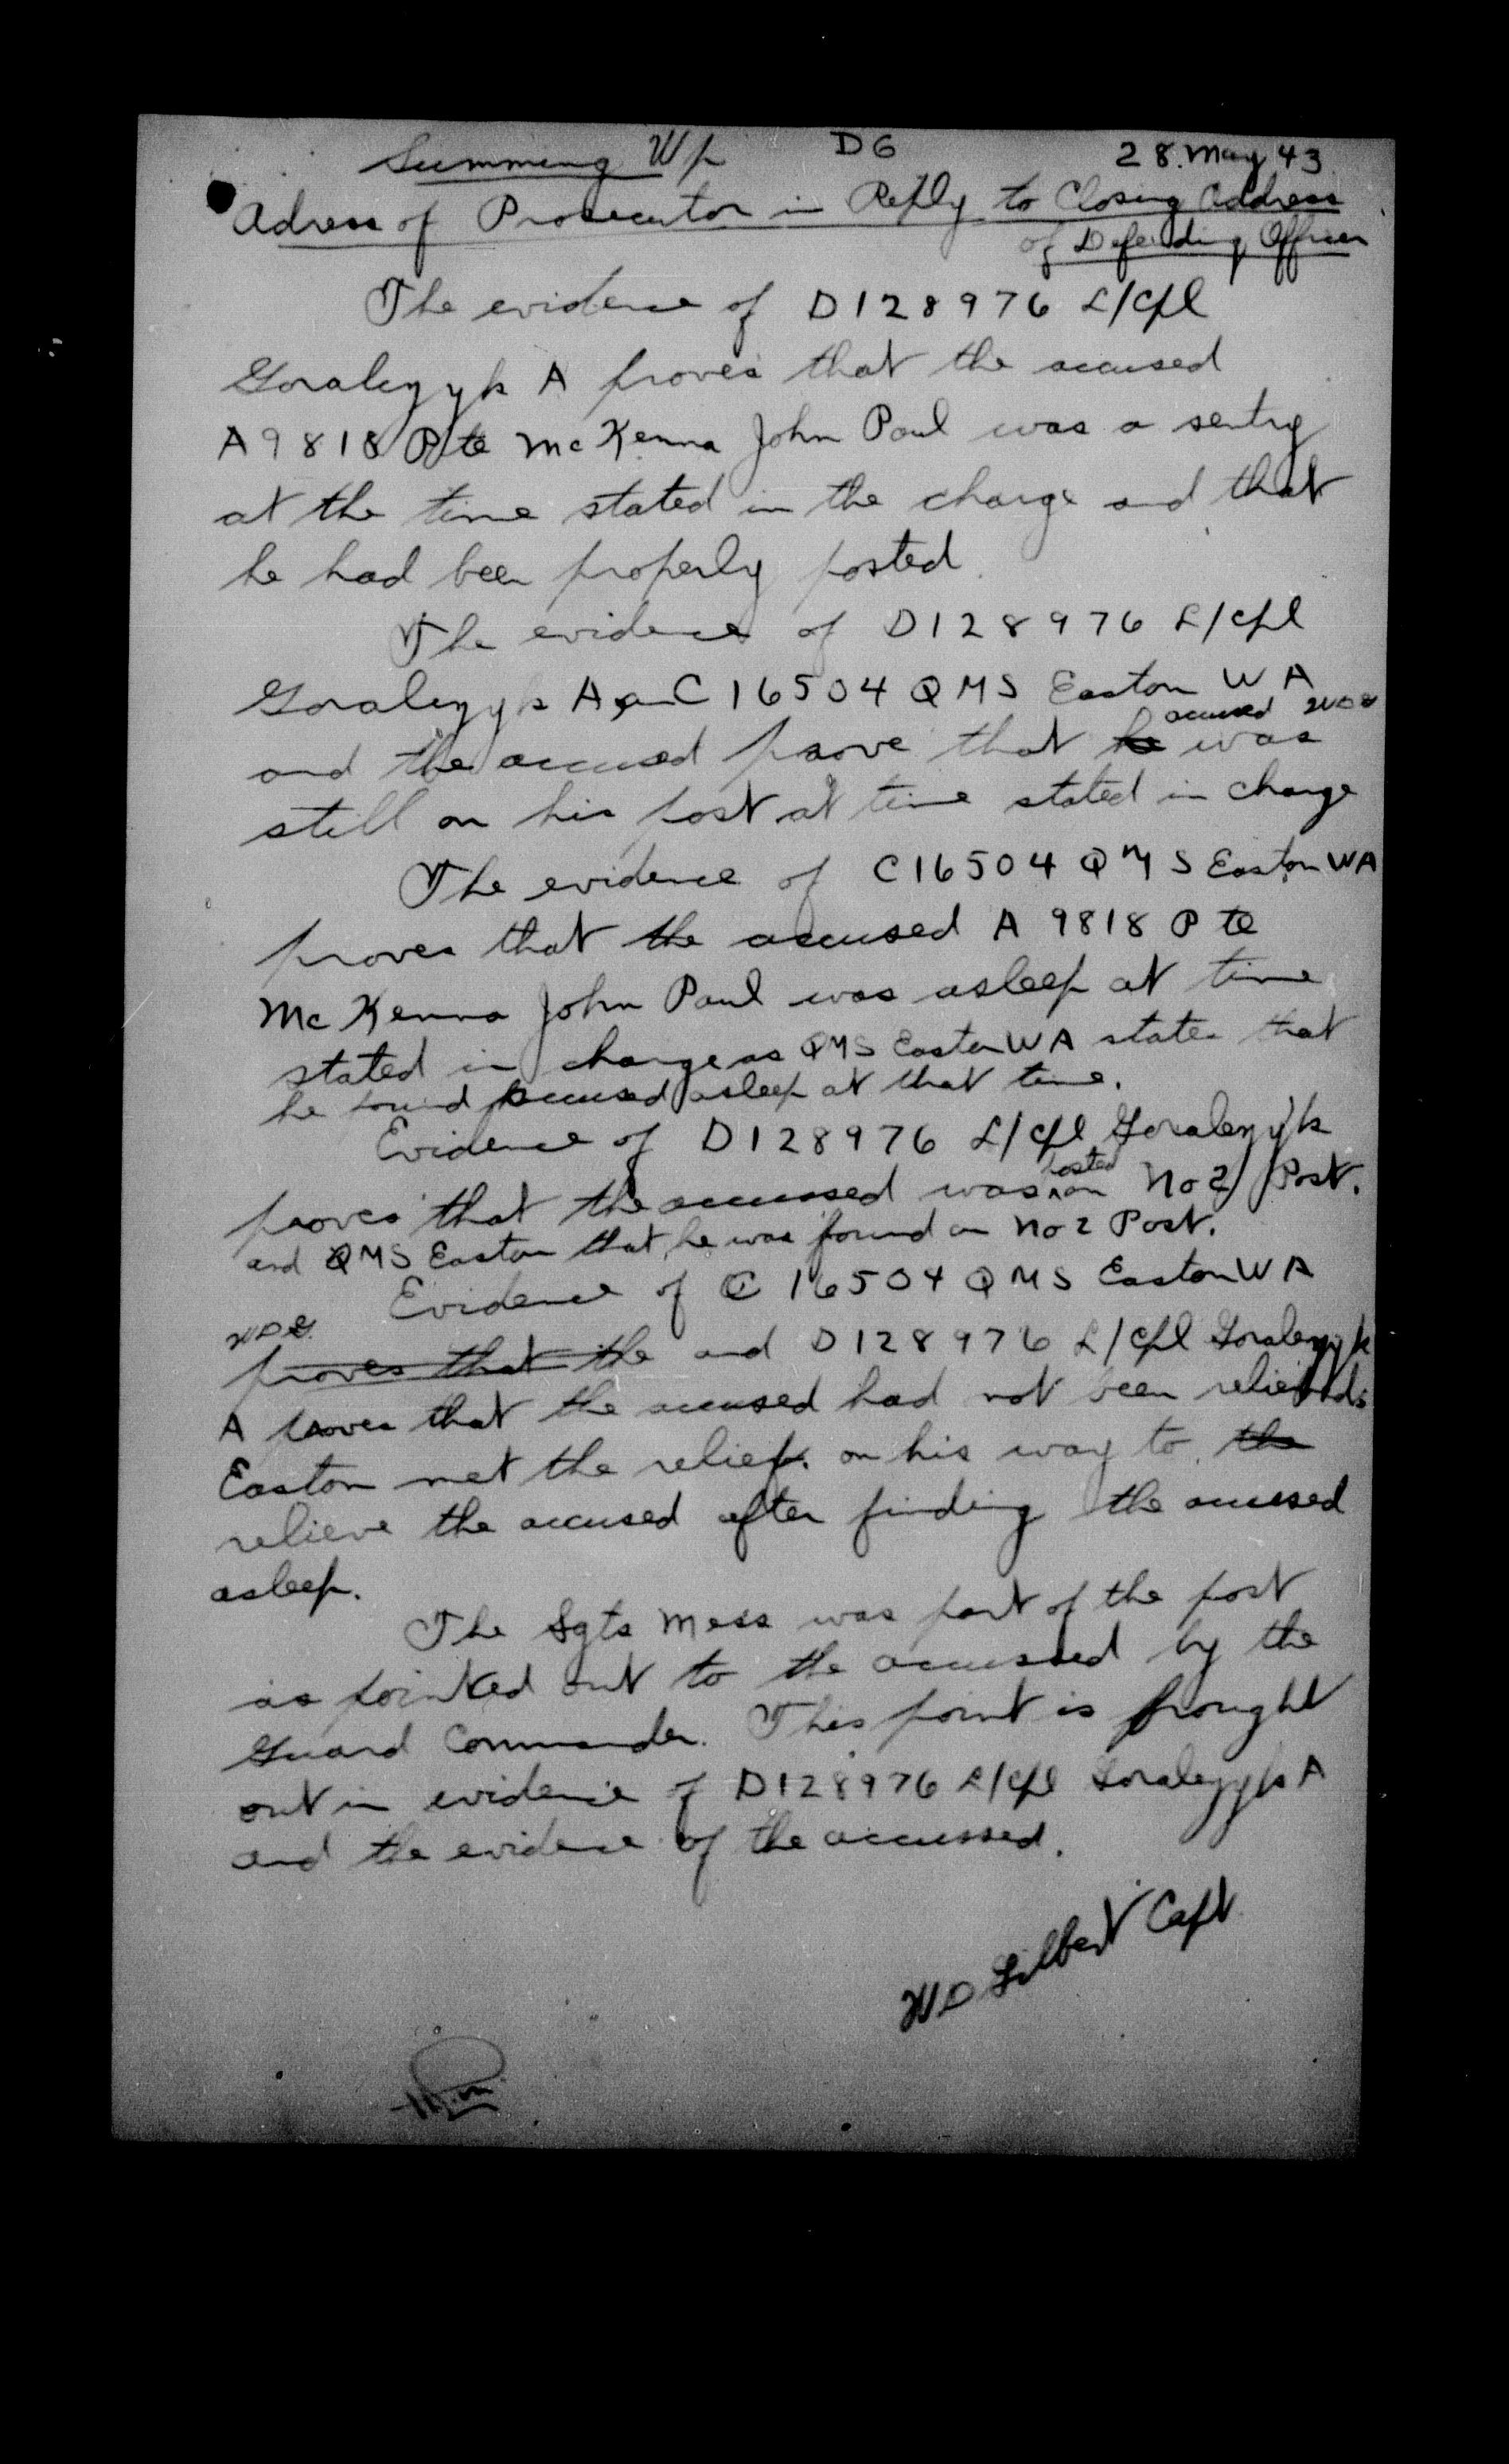 Summing Up D6 28. May 43
Adress of Prosecutor in Reply to Closing Address
of Defending Officer
The evidence of D128976 L/Cpl
Goralczyk A proves that the accused
A9818 Pte McKenna John Paul was a sentry
at the time stated in the charge and that
he had been properly posted.
The evidence of D128976 L/Cpl
Goralczyk A C16504 QMS Easton WA
accused WDG
and the accused prove that he was
still on his post at time stated in charge
The evidence of C16504 QMS Easton WA
proves that the accused A 9818 Pte
McKenna John Paul was asleep at time
stated in charge as QMS Easton WA states that
he found accused asleep at that time.
Evidence of D128976 L/Cpl Goralczyk
posted
proves that the accused was on No 2 Post.
and QMS Easton that he was found on No 2 Post.
Evidence of C 16504 QMS Easton WA
WDG.
proves that the and D128976 L/Cpl Goralczyk
A proves that the accused had not been relieved
Easton met the relief. on his way to the
relieve the accused after finding the accused
asleep.
The Sgts Mess was part of the post
as pointed out to the accussed by the
Guard Commander. This point is brought
out in evidence of D128976 L/Cpl Goralczyk A
and the evidence of the accussed.
WD Gilbert Capt